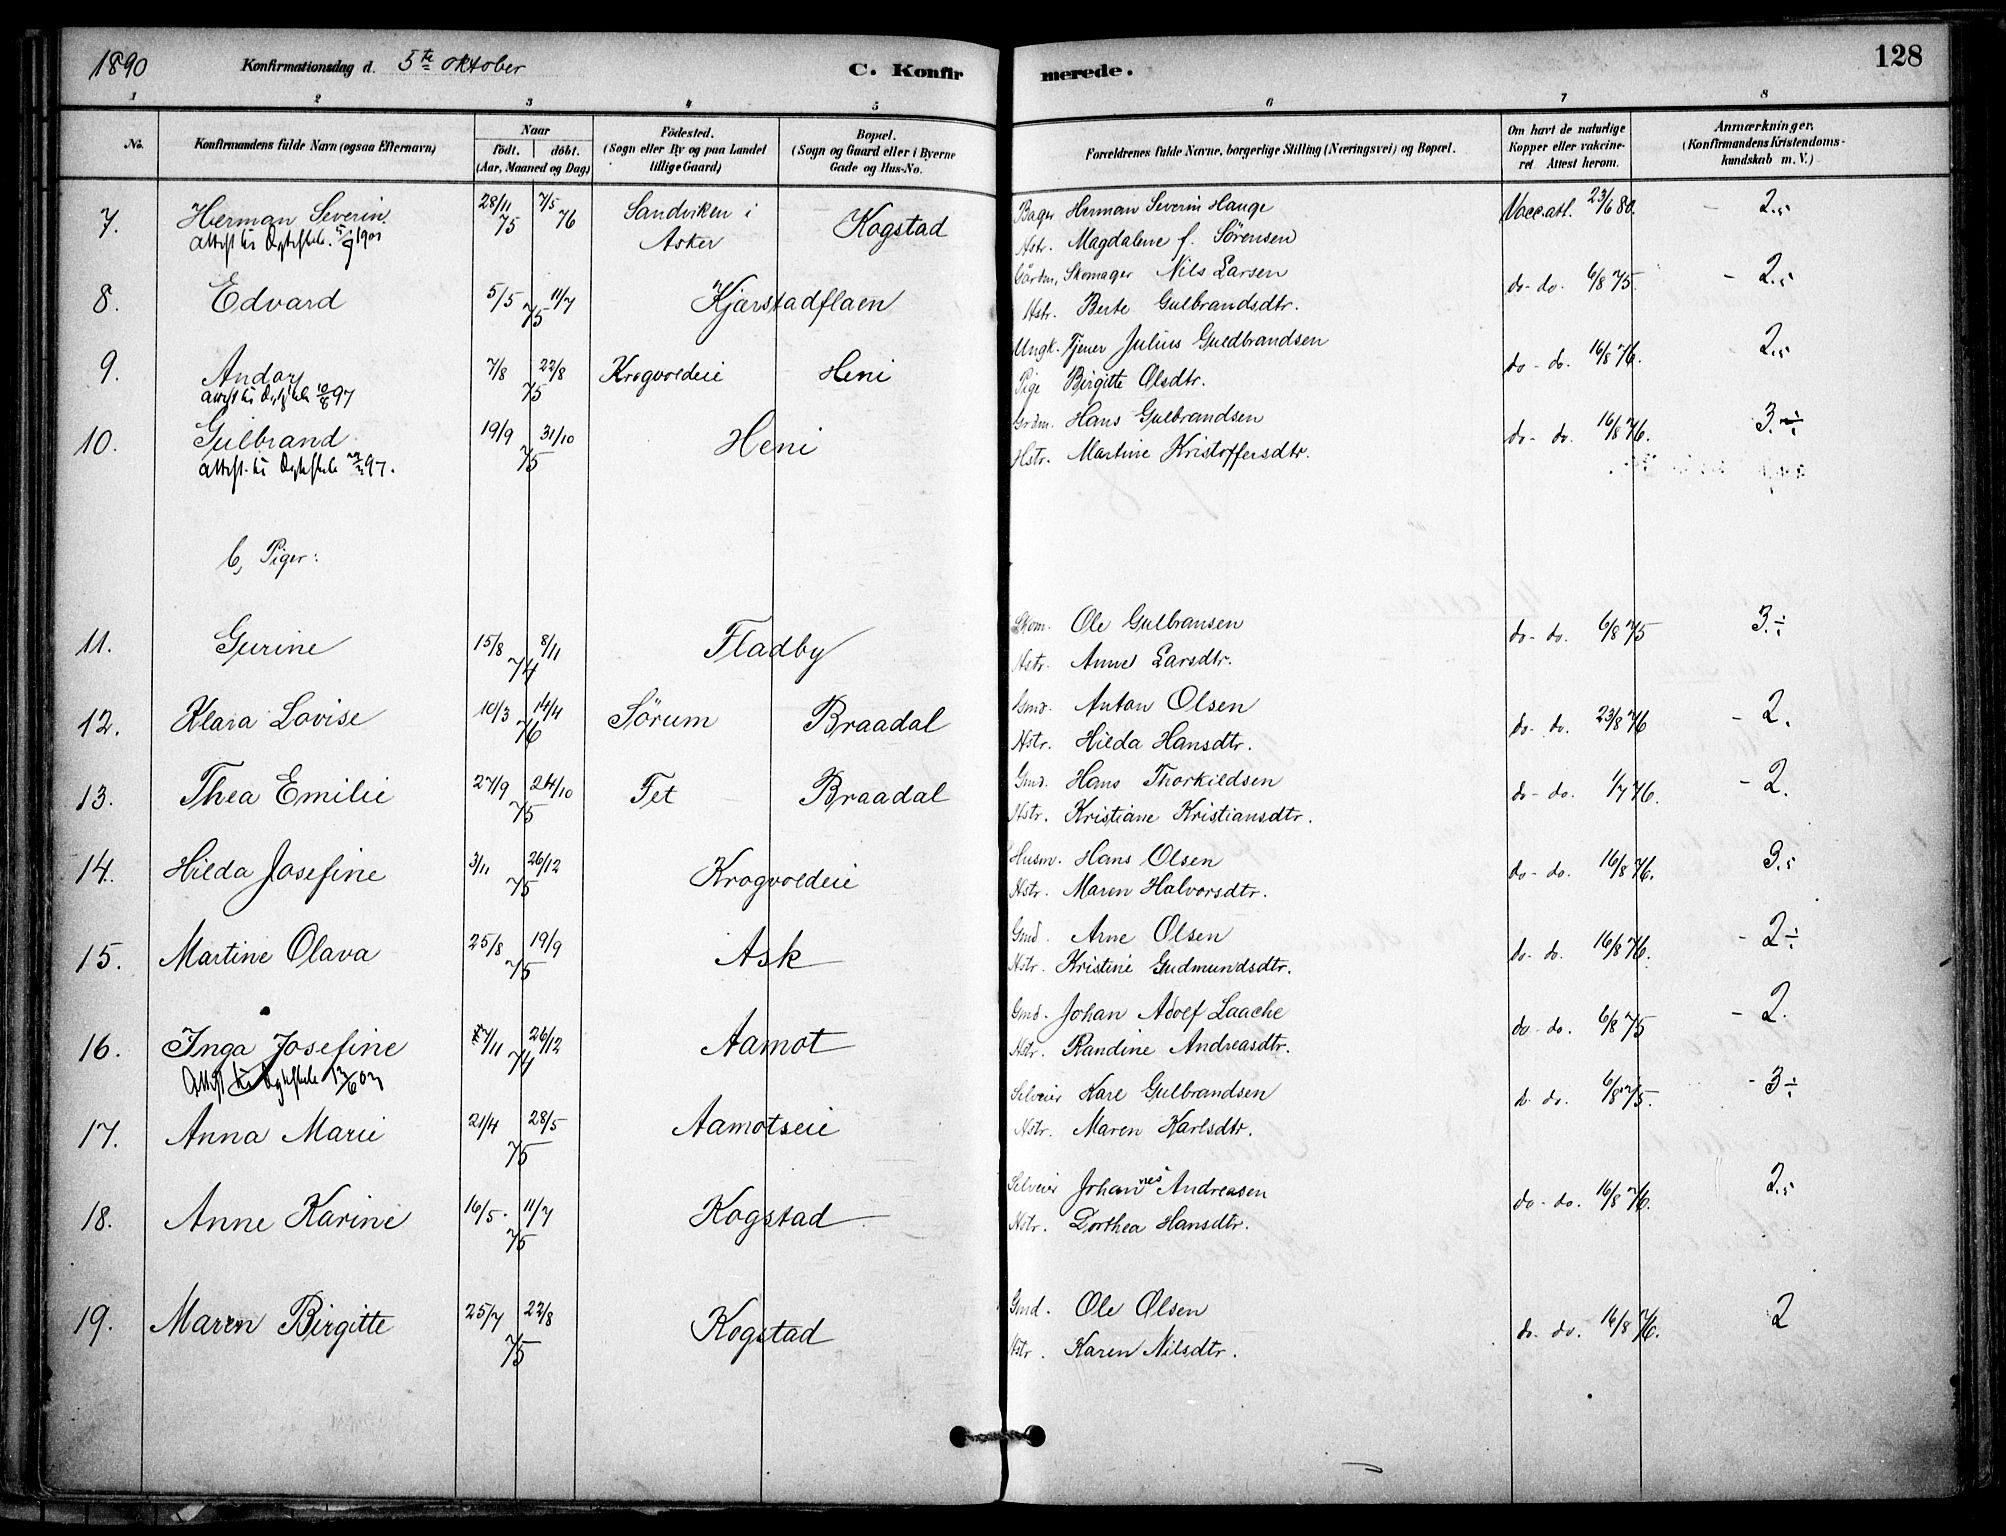 1890 Konfirmationsdag d. 5te Oktober C. Konfirmerede. 128
1 2 3 4 5 6 7 8
No. Konfirmandens fulde Navn (ogsaa Efternavn) Naar født. døbt. (Aar, Maaned og Dag) Födested. (Sogn eller By og paa Landet tillige Gaard) Bopæl. (Sogn og Gaard eller i Byerne Gade og Hus-No. Forældrenes fulde Navne, borgerlige Stilling (Næringsvei) og Bopæl. Om havt de naturlige Kopper eller vakcineret. Attest herom. Anmærkninger. (Konfirmandens Kristendomskundskab m. V.)
7. Herman Severin 28/11 75 7/5 76 Sandviken i Asker Kogstad Bager Herman Severin Hauge Vacc. att. 23/6 80. - 2.5
Attest til 5/9 1901 Hstr. Magdalene f. Sörensen
8. Edvard 5/5 11/7 75 Kjærstadflaen Gårdm, Skomager Nils Larsen do- do. 6/8 75. - 2.5
Hstr. Berte Gulbrandsdtr.
9. Andor 7/8 22/8 75 Krogvoldeie Heni Ungk. Tjener Julius Guldbrandsen do- do. 16/8 76. 2.5
Attest til 10/8 97 Pige Birgitte Olsdtr.
10. Gulbrand 19/9 31/10 75 Heni Grdm. Hans Gulbrandsen do- do. 16/8 76. 3.÷
Attest. til 97. Hstr. Martine Kristoffersdtr.
b, Piger:
11. Gurine 15/8 8/11 74 Fladby Skom. Ole Gulbransen do- do. 6/8 75 3.÷
Hstr. Anne Larsdtr.
12. Klara Lovise 10/3 14/4 76 Sörum Braadal Gmd. Anton Olsen do- do. 23/8 76 - 2.
Hstr. Hilda Hansdtr.
13. Thea Emilie 27/9 24/10 75 Fet Braadal Gmd. Hans Thorkildsen do- do. 1/7 76. - 2.
Hstr. Kristiane Kristiansdtr.
14. Hilda Josefine 3/11 26/12 75 Krogvoldeie Husm. Hans Olsen do- do. 16/8 76. 3.5
Hstr. Maren Halvorsdtr.
15. Martine Olava 25/8 19/9 75 Ask Gmd. Arne Olsen do- do. 16/8 76. - 2÷
Hstr. Kristine Gudmundsdtr.
16. Inga Josefine 7/11 26/12 74 Aamot Gmd. Johan Adolf Laache do- do. 6/8 75 - 2.
Attest til Hstr. Randine Andreasdtr.
17. Anna Marie 21/4 28/5 75 Aamotseie Selveier Karl Gulbrandsen do- do. 6/8 75. - 3÷
Hstr. Maren Karlsdtr.
18. Anne Karine 16/5. 11/7 75 Kogstad Selveier Johannes Andreasen do- do. 16/8 76. 2.5
Hstr. Dorthea Hansdtr.
19. Maren Birgitte 25/7 22/8 75 Kogstad Gmd. Ole Olsen do- do. 16/8 76. 2
Hstr. Karen Nilsdtr.